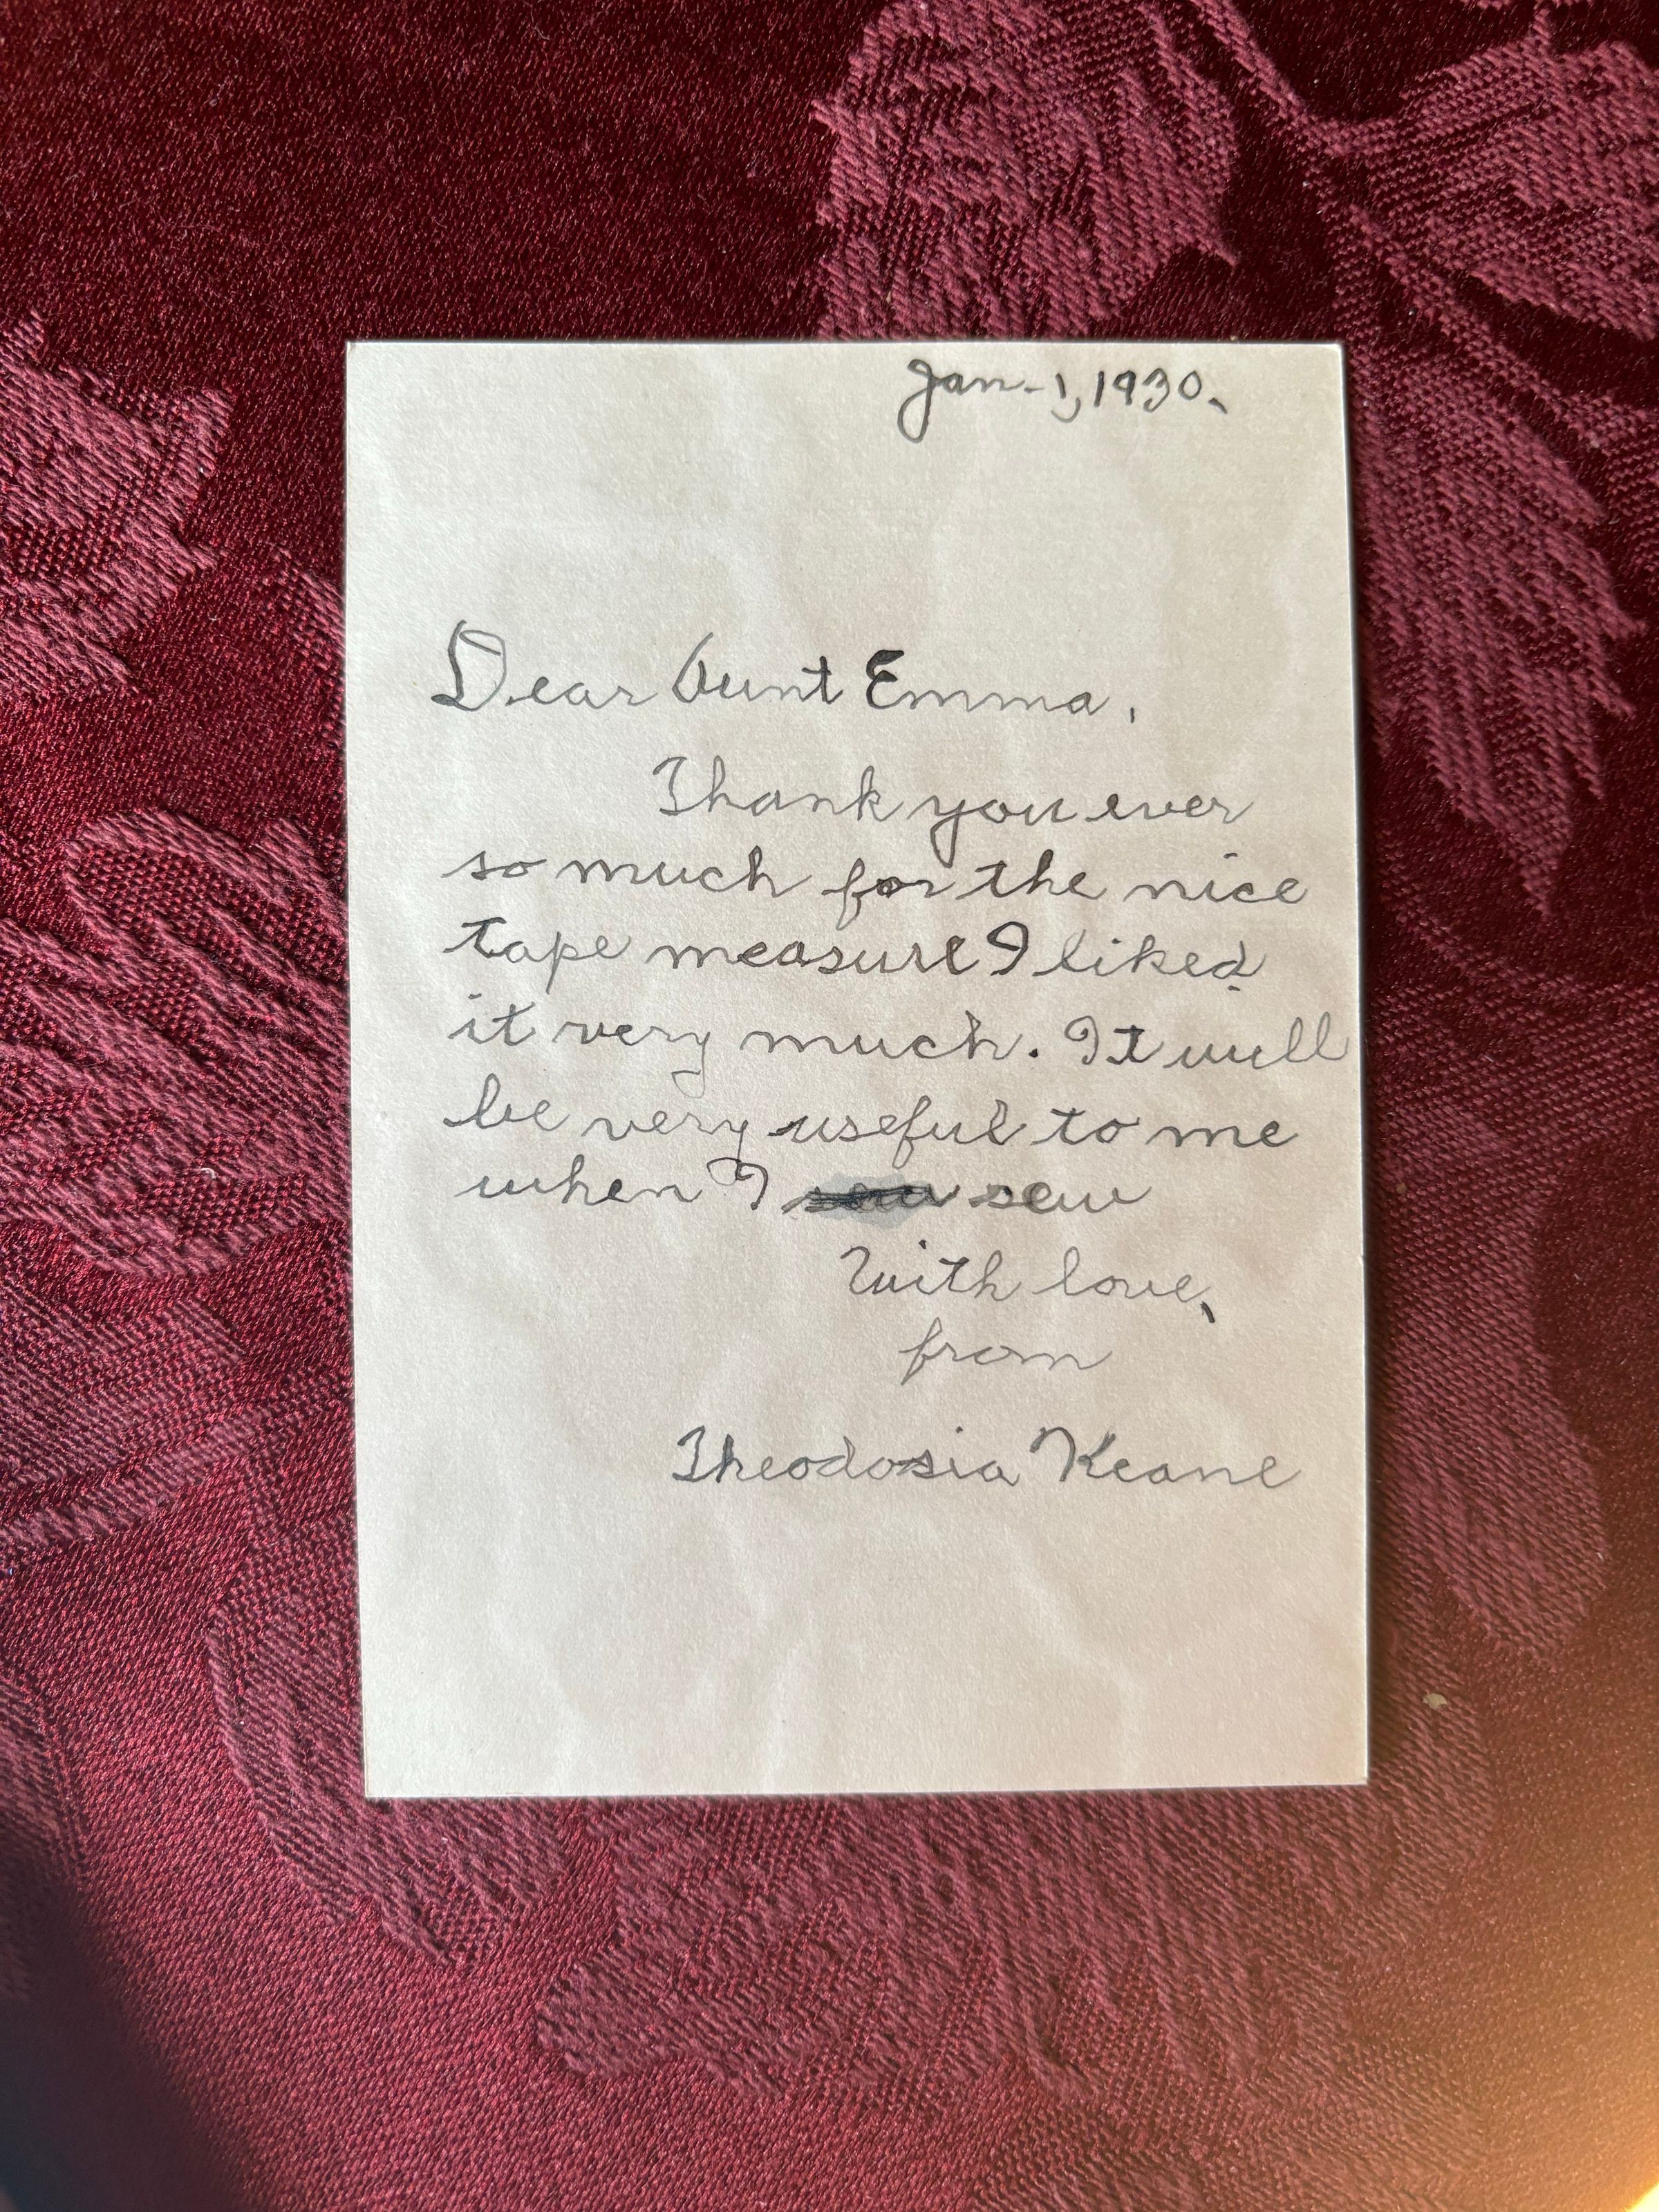 Jan. 1, 1930.
Dear Aunt Emma,
Thank you ever
so much for the nice
tape measure I liked
it very much. It will
be very useful to me
when I sew
With love,
from
Theodosia Keane